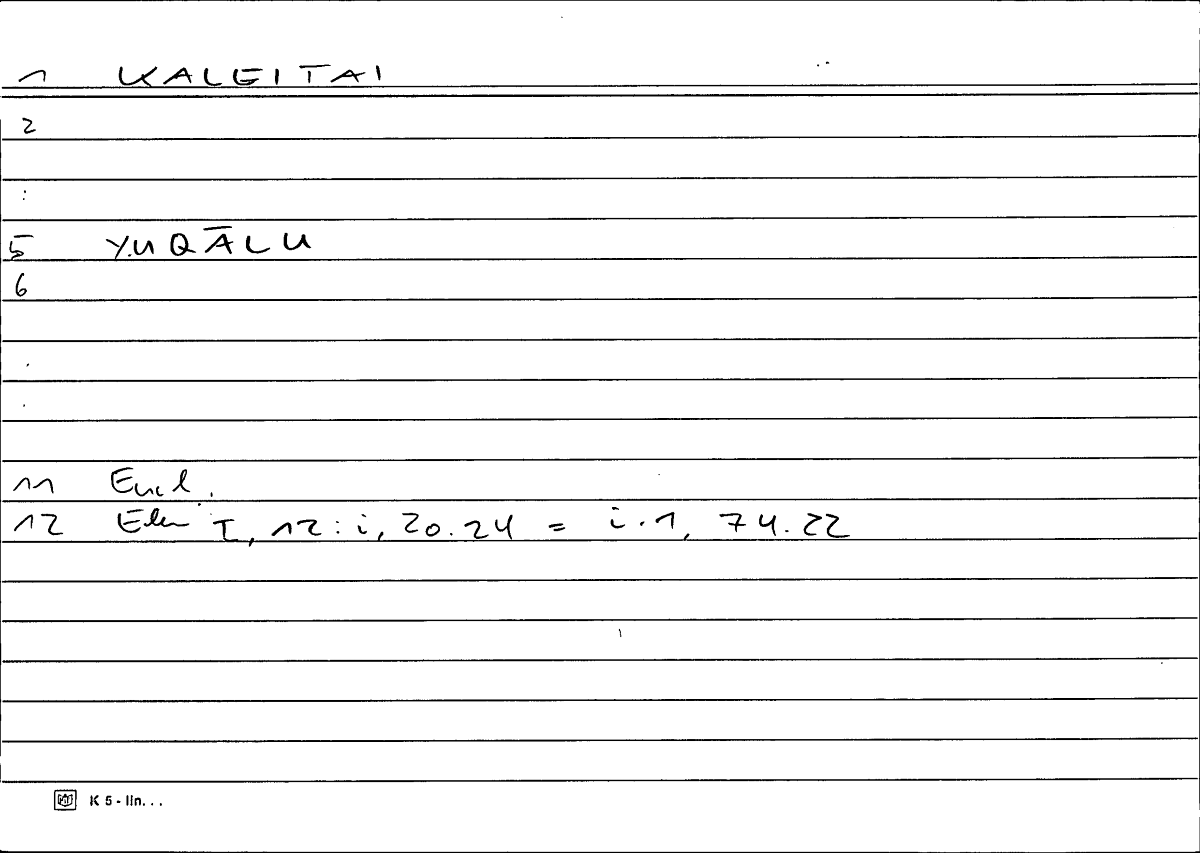 1 KALEITAI
2
:
5 YUQĀLU
6
.
.
11 Eucl.
12 Elem I, 12 : i, 20.24 = i.1, 74.22
K 5 - lin...